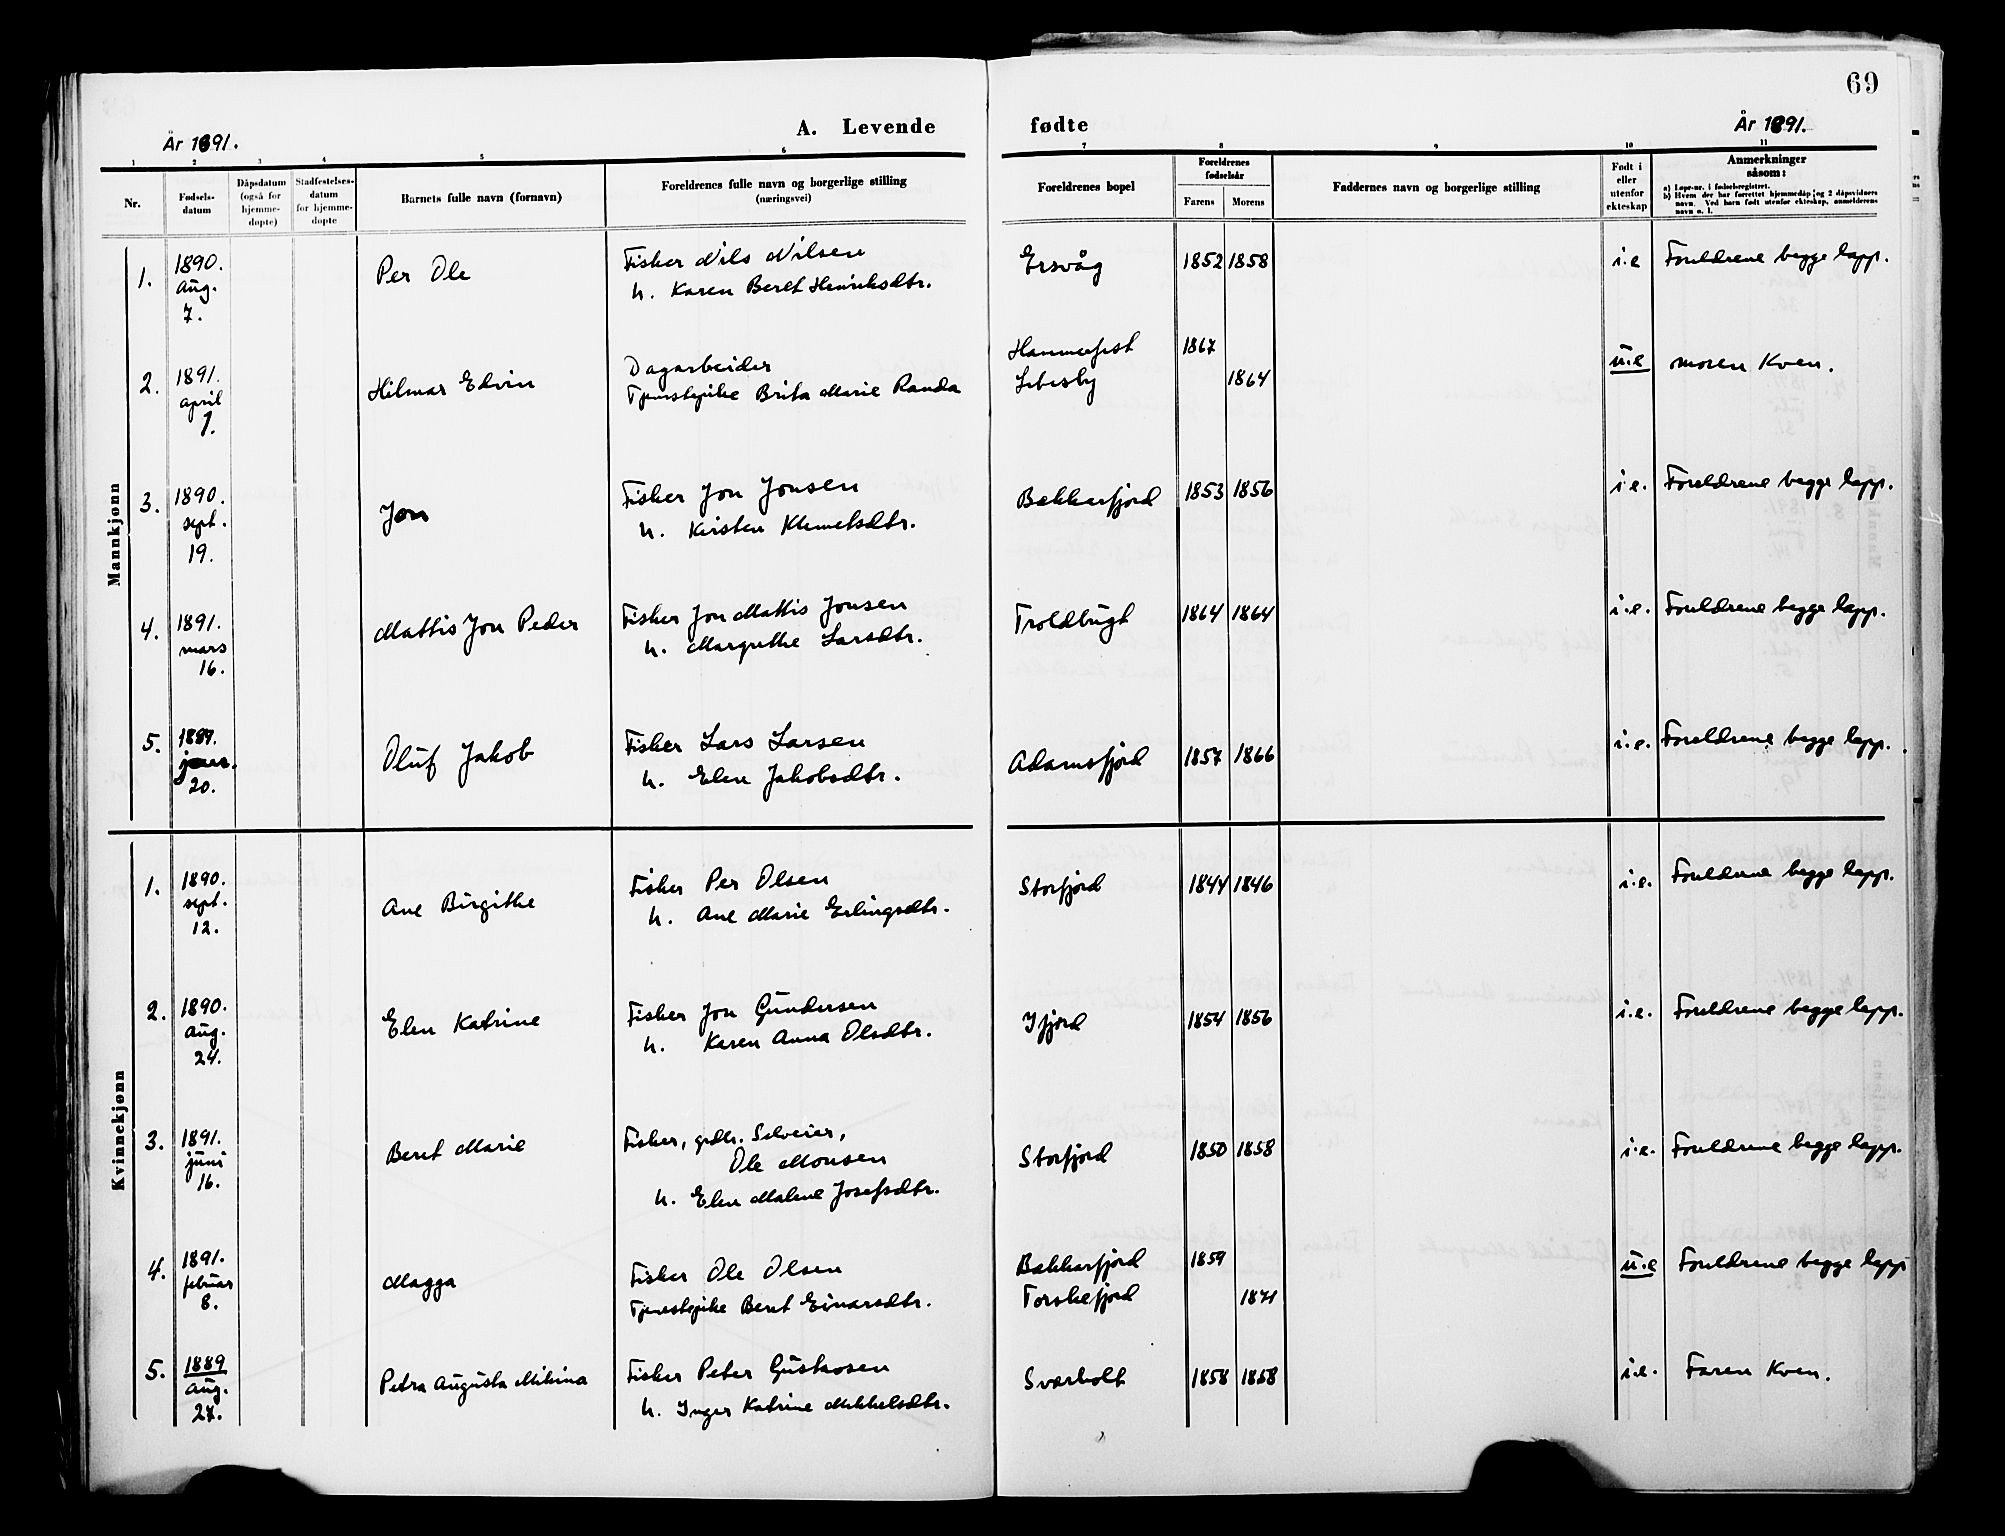 69
År 1891.
A. Levende
fødte
År 1891.
1 2 3 4 5 6 7 8 9 10 11
Nr.
Fødsels-
datum
Dåpsdatum
(også for
hjemme-
døpte)
Stadfestelses-
datum
for hjemme-
døpte
Barnets fulle navn (fornavn)
Foreldrenes fulle navn og borgerlige stilling
(næringsvei)
Foreldrenes bopel
Foreldrenes
fødselsår
Farens Morens
Faddernes navn og borgerlige stilling
Født i
eller
utenfor
ekteskap
Anmerkninger
såsom:
a) Løpe-nr. i fødselsregistret.
b) Hvem der har forrettet hjemmedåp og 2 dåpsvidners
navn. Ved barn født utenfor ekteskap, anmelderens
navn o. l.
Mannkjønn
1. 1890. Aug. 7.
Per Ole
Fisker Nils Nilsen
h. Karen Beret Henriksdtr.
Ersvåg
1852 1858
i.e
Foreldrene begge lapp.
2. 1891. april 1.
Hilmar Edvin
Dagarbeider
Tjenestepike Brita Marie Randa
Hammerfest 1867
Lebesby 1864
u.e
Moren Kven.
3. 1890. sept. 19.
Jon
Fisker Jon Jonsen
h. Kirsten Klemetsdtr.
Bekkarfjord
1853 1856
i.e.
Foreldrene begge lapp.
4. 1891. mars 16.
Mattis Jon Peder
Fisker Jon Mattis Jonsen
h. Margrethe Larsdtr.
Troldbugt
1864 1864
i.e.
Foreldrene begge lapp.
5. 1889. 20.
Oluf Jakob
Fisker Lars Larsen
h. Elen Jakobsdtr.
Adamsfjord
1857 1866
i.e.
Foreldrene begge lapp.
Kvinnekjønn
1. 1890. sept. 12.
Ane Birgithe
Fisker Per Olsen
h. Ane Marie Erlingsdtr.
Storfjord
1844 1846
i.e.
Foreldrene begge lapp.
2. 1890. Aug. 24.
Elen Katrine
Fisker Jon Gundersen
h. Karen Anna Olsdtr.
Ifjord
1854 1856
i.e.
Foreldrene begge lapp.
3. 1891. juni 16.
Beret Marie
Fisker, grdbr. Selveier,
Ole Monsen
h. Elen Malene Josefsdtr.
Storfjord
1850 1858
i.e.
Foreldrene begge lapp.
4. 1891. februar 8.
Magga
Fisker Ole Olsen
Tjenestepike Beret Einarsdtr.
Bekkarfjord 1859
Torskefjord 1871
u.e
Foreldrene begge lapp
5. 1889 Aug. 27.
Petra Augusta Mikina
Fisker Peter Gustavsen
h. Inger Katrine Mikkelsdtr.
Sværholt
1858 1858
i.e.
Faren Kven.